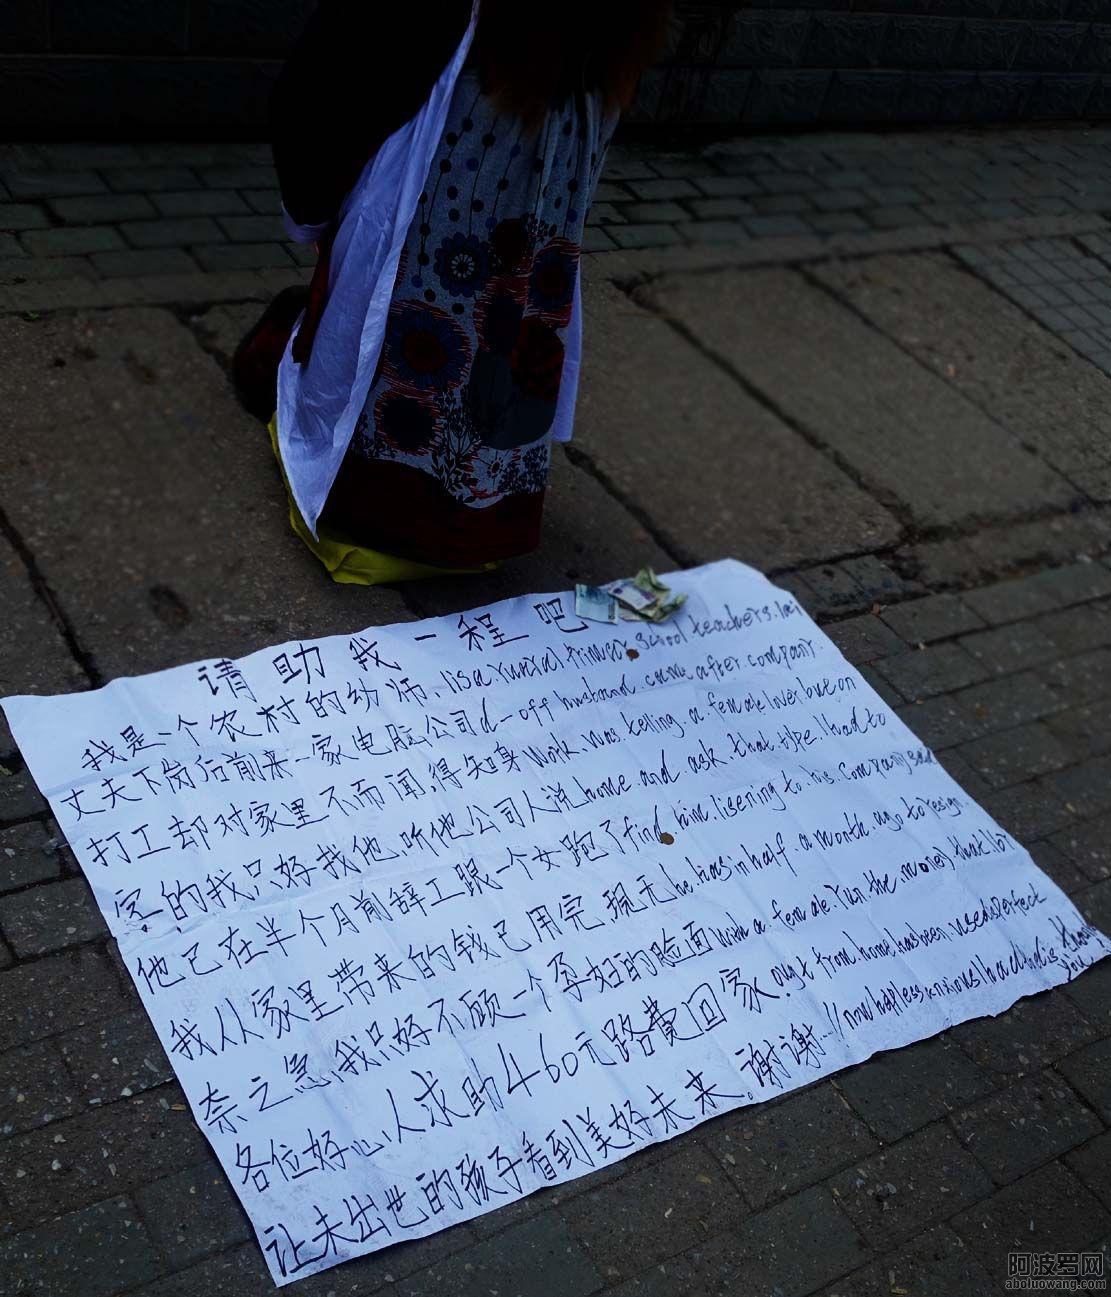 请助我一程吧
我是一个农村的幼师. Is a rural primer school teachers. lai
丈夫下岗后前来一家电脑公司d-off husband. came after. company.
打工却对家里不而闻,得知身Work. was. telling. a. female liver bue on
的我只好找他.听他公司人说home. and. ask. that. type. I had to
他已在半个月前辞工跟一个女跑了find him. lisering to. his. company
我从家里带来的钱已用完.现无he. has in half. a month. ago to resign.
奈之急,我只好不顾一个孕妇的脸面With a. female. run the. money that I
各位好心人求助460元路费回家. from. home. has been. used
让未出世的孩子看到美好未来。谢谢…!! hapless anxious I had
Thank you
阿波罗网
aboluowang.com